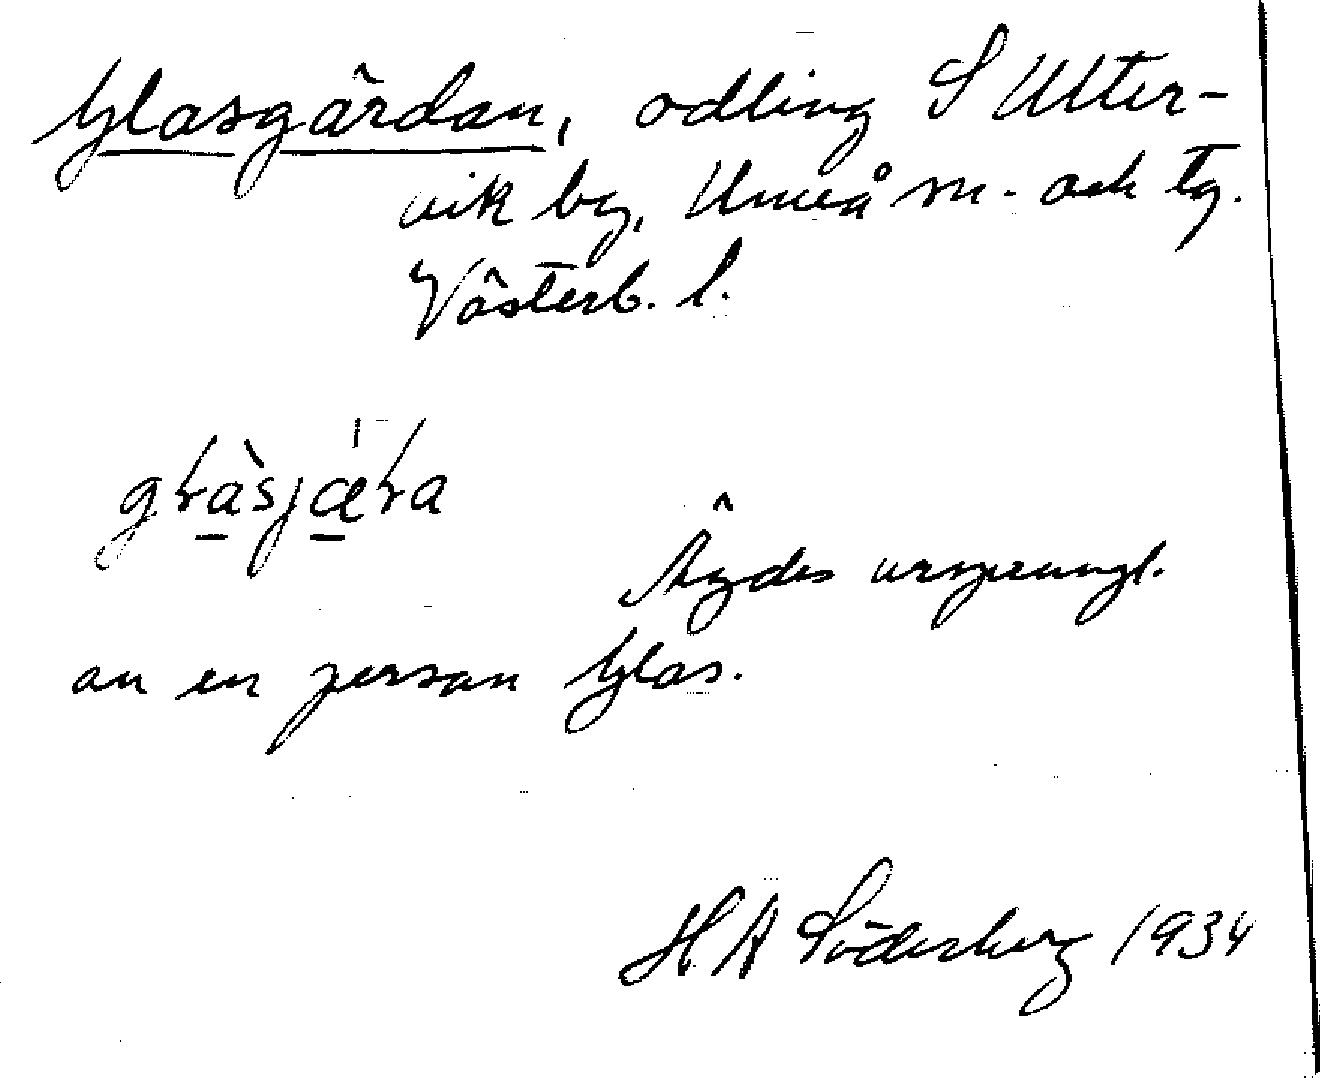 Glasgärdan, odling S Ulter-
vik by, Umeå sn. och tg.
Västerb. l.
Ägdes ursprungl.
av en person Glas.
H. A Söderberg 1934